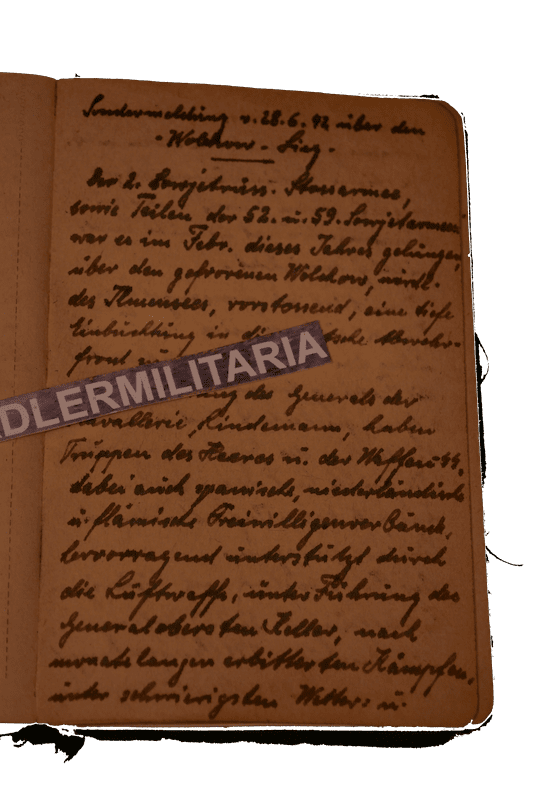 Sondermeldung v. 28.6.42 über den
-Wolchow-Sieg-
Der 2. Sowjetruss. Stossarmee,
sowie Teilen der 52. u. 59. Sowjetarmeen
war es im Febr. dieses Jahres gelungen,
über den gefrorenen Wolchow, nördl.
des Ilmensees, vorstossend, eine tiefe
Einbuchtung in die Abwehr-
front
ADLERMILITARIA
des Generals der
Kavallerie, Lindemann, haben
Truppen des Heeres u. der Waffen-SS,
dabei auch spanische, niederländische
u. flämische Freiwilligenverbände,
hervorragend unterstützt durch
die Luftwaffe, unter Führung des
Generalobersten Keller, nach
monatelangen erbitterten Kämpfen,
unter schwierigsten Wetter- u.